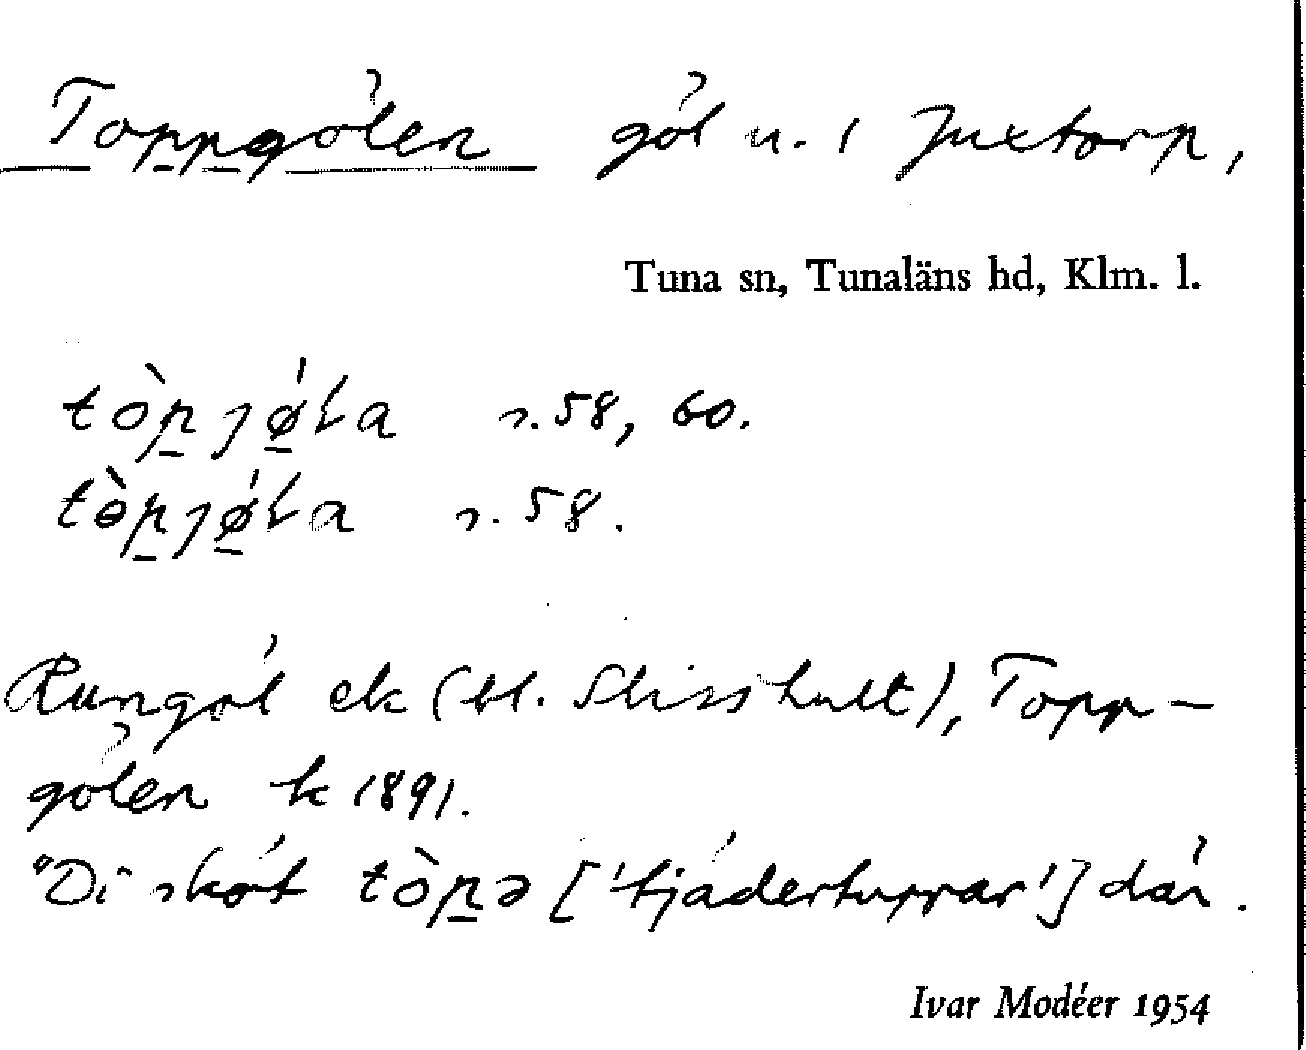 Toppgölen göl n. i Juxtorp,
Tuna sn, Tunaläns hd, Klm. l.
s. 58, 60.
s. 58.
Rungöl ek (bl. Slisshult), Topp-
gölen k 1891.
"Di sköt tòp̠ə ['tjädertuppar'] där.
Ivar Modéer 1954